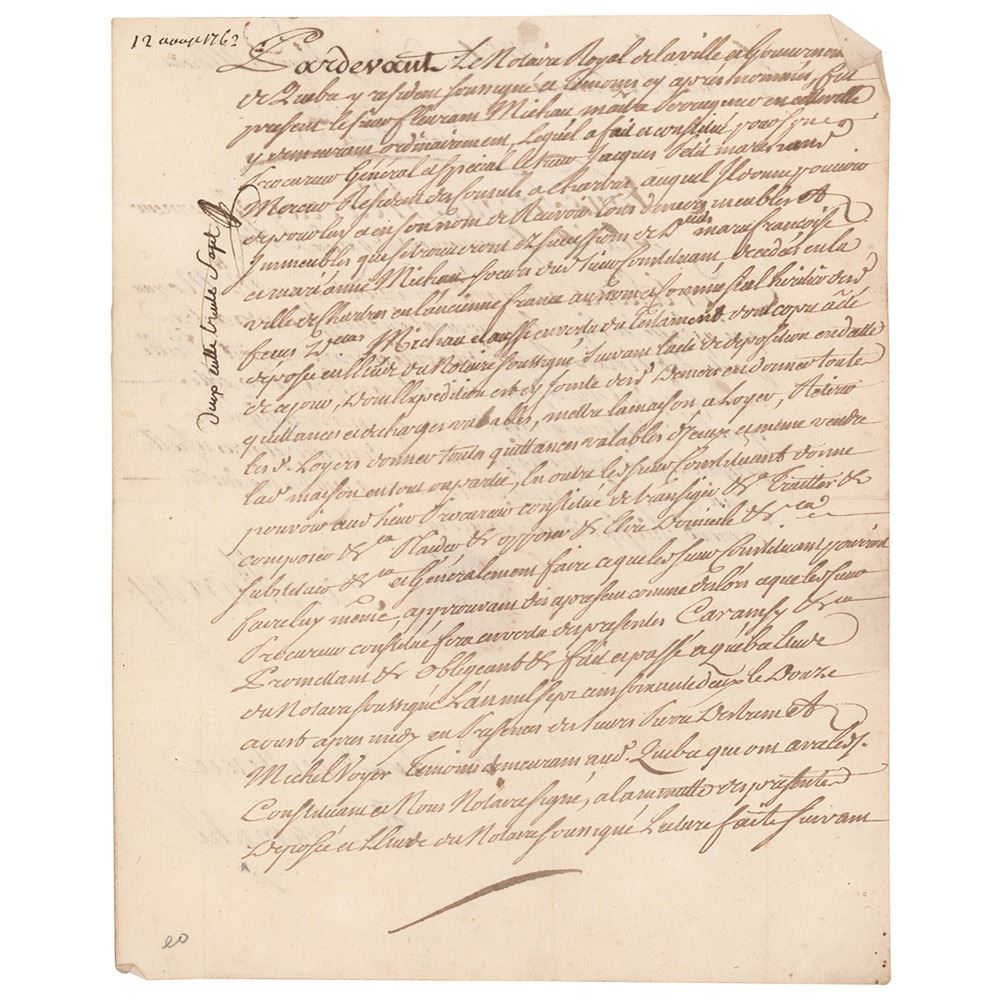 12 aoust 1762
Pardevant Le Notaire Royal de la ville et Gouvernem
de Quebec y resident soussigné et temoins cy après nommés, fut
present le sieur fleurant Michau maitre en cette ville
y demeurant ordinairement, Lequel a fait et constitué pour son
Procureur Général et special le sieur Jacques Petit marchand
Resident des Consuls a Chartres auquel Il donne pouvoir
de pour luy et en son nom de Recevoir tous meubles et
Immeubles que se trouveront successions de Dlles marie francoise
et marianne Michau soeurs du d. sieur Constituant decedés en la
ville de Chartres en l'ancienne france au nom et comme seul heritier des d.
feues Dlles Michau et aussi en vertu du Testament dont copie a été
deposée en l'Etude du Notaire soussigné suivant l'acte de deposition en datte
de ce jour, dont Expedition est cy jointe en donner toute
quittances et decharges valables, mettre la maison a Loyer, Retirer
les d. Loyers donner toutes quittances valables d'Iceux et meme vendre
la d. maison en tout ou partie, En outre le d. sieur Constituant donne
pouvoir aud. sieur Procureur constitué de transiger &a Traitter &
composer &a Plaider & opposer & Elire Domicile &a
substituer &a et Généralement faire ce que le d. sieur Constituant pourroit
faire luy même, approuvant des apresent comme des lors ce que le d. sieur
Procureur constitué fera en vertu des presentes Car ainsy &a
Promettant & obligeant & fait et passé a quebec Etude
du Notaire soussigné L'an mil sept cent soixante deux le Douze
aoust après midy en Presences des sieurs Pierre et
Michel Voyer temoins demeurant aud. Quebec qui ont avec le d. s.
Constituant et Nous Notaire signé, a la minutte des presentes
Deposée et Etude du Notaire soussigné Lecture faite suivant
deux cent trente sept
20